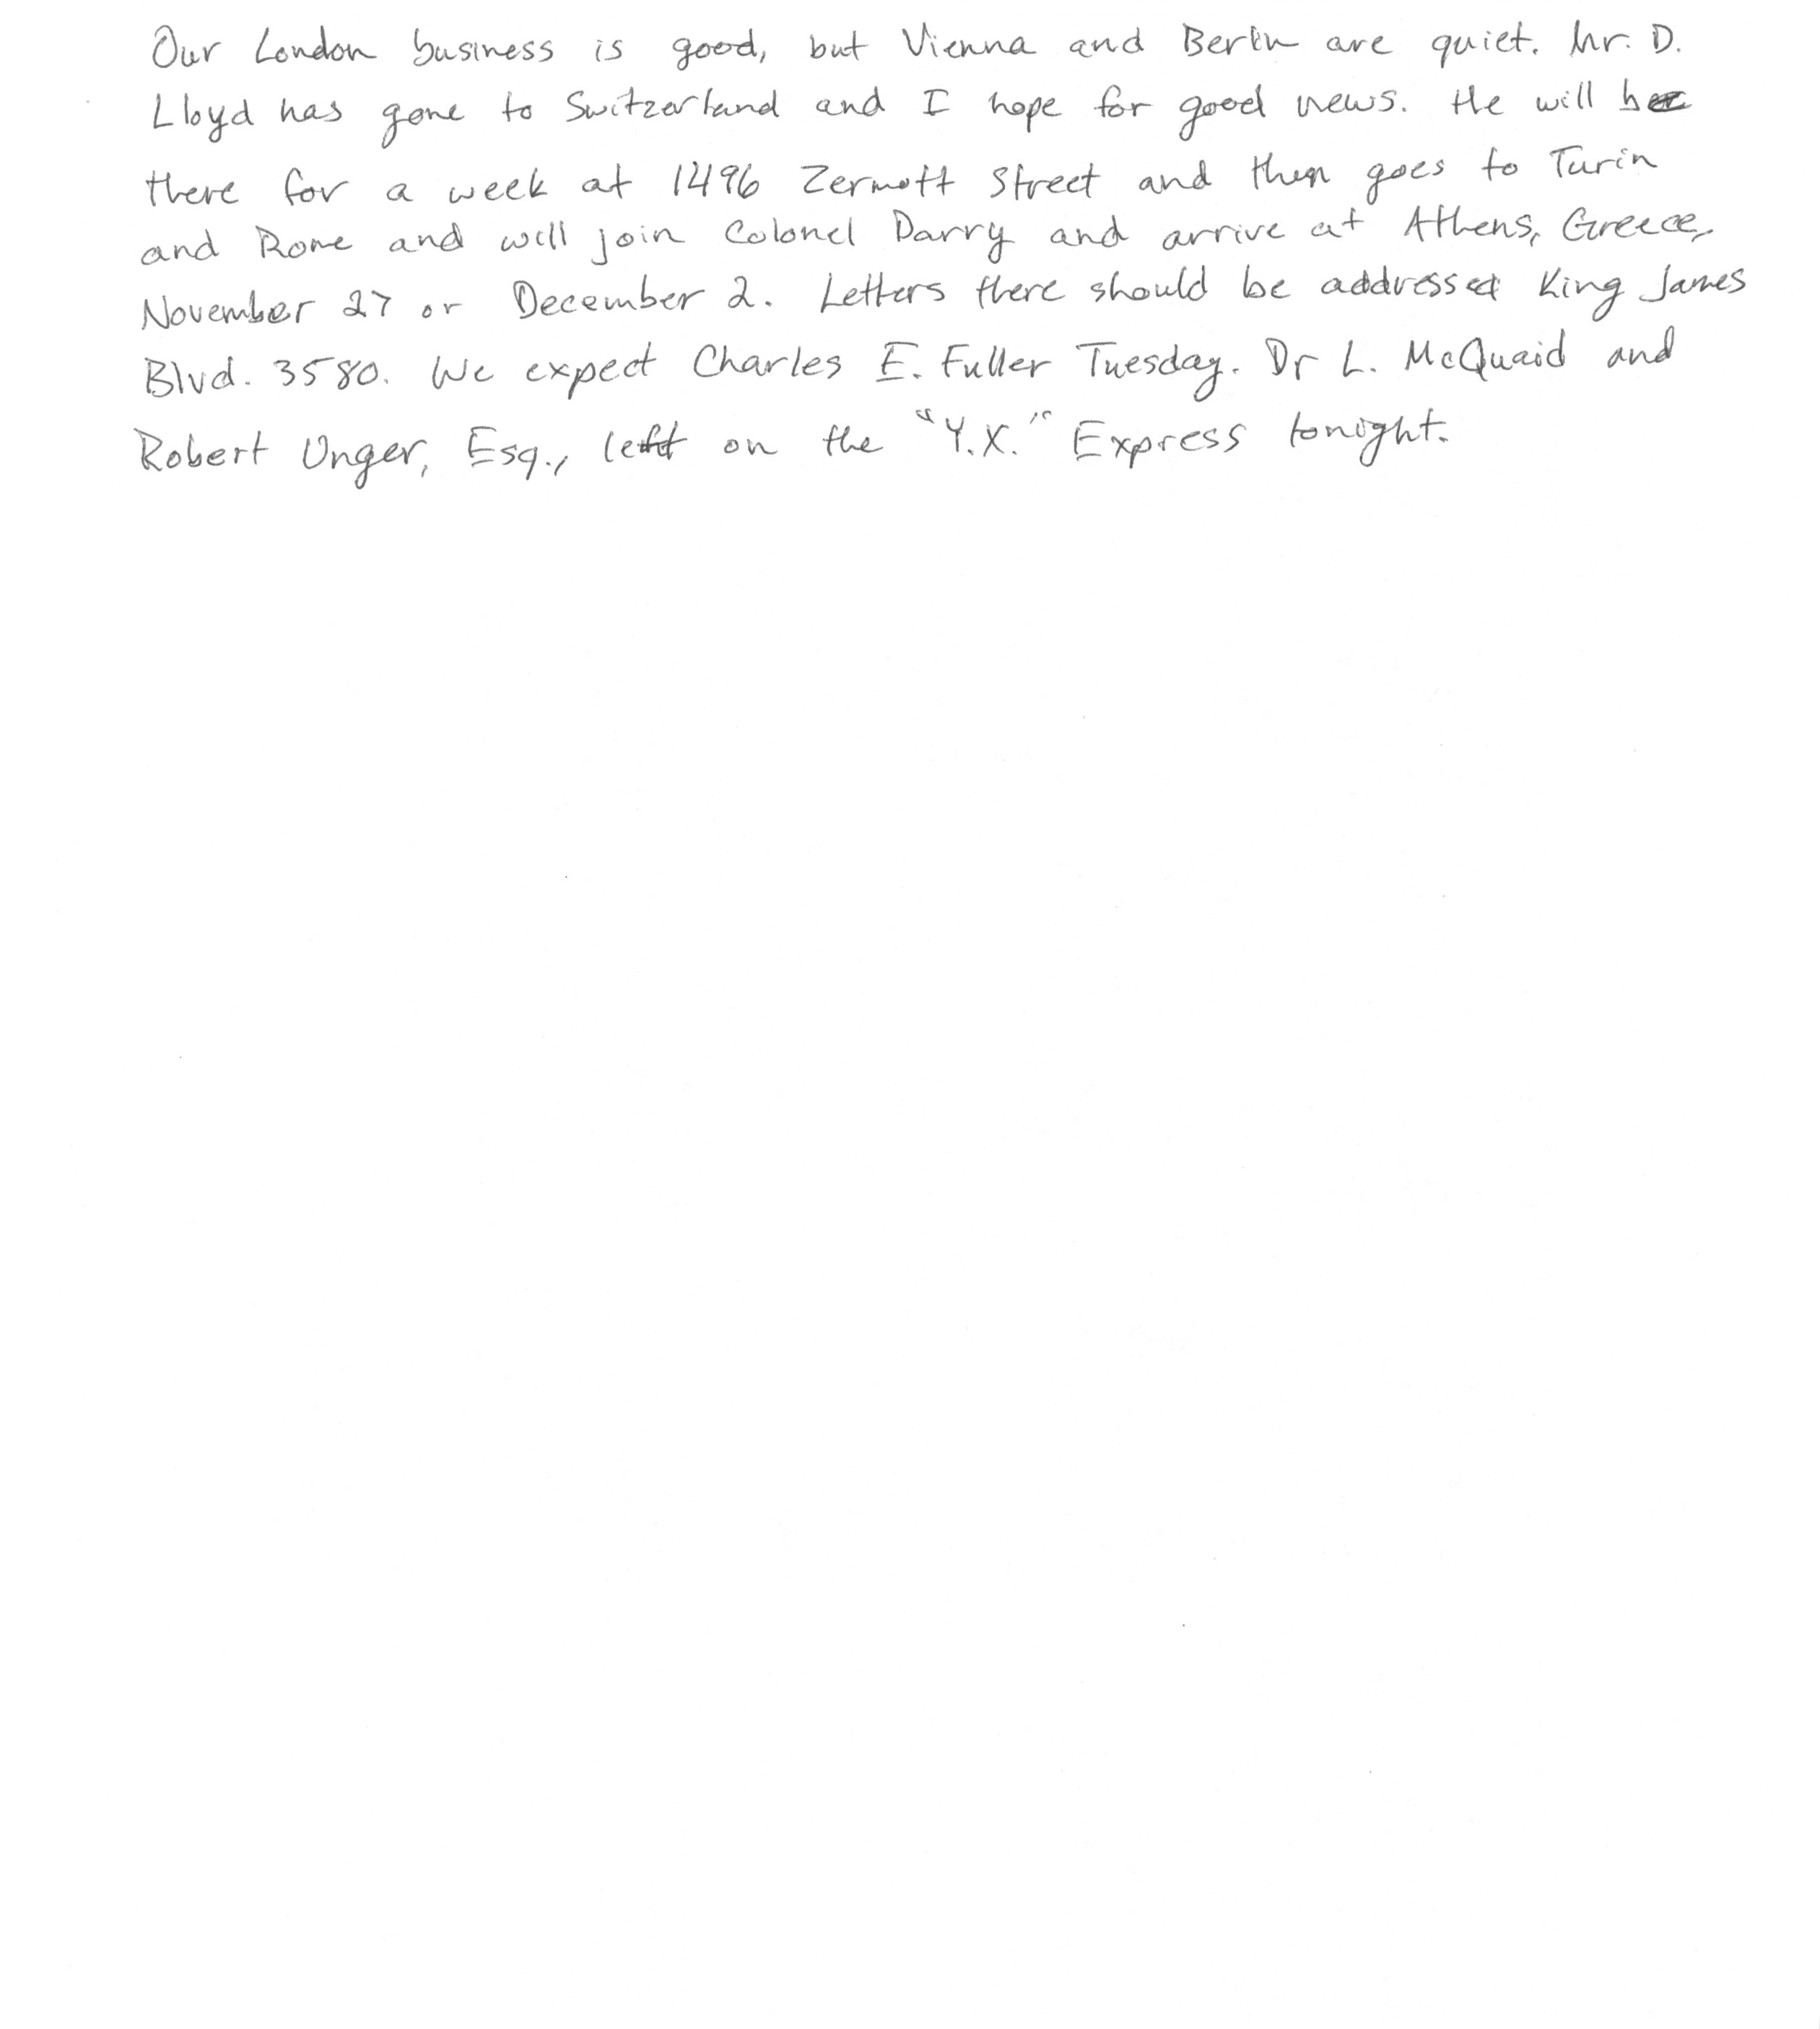 Our London business is good, but Vienna and Berlin are quiet. Mr. D.
Lloyd has gone to Switzerland and I hope for good news. He will be
there for a week at 1496 Zermott Street and then goes to Turin
and Rome and will join Colonel Parry and arrive at Athens, Greece,
November 27 or December 2. Letters there should be addressed King James
Blvd. 3580. We expect Charles E. Fuller Tuesday. Dr L. McQuaid and
Robert Unger, Esq., left on the "Y.X." Express tonight.